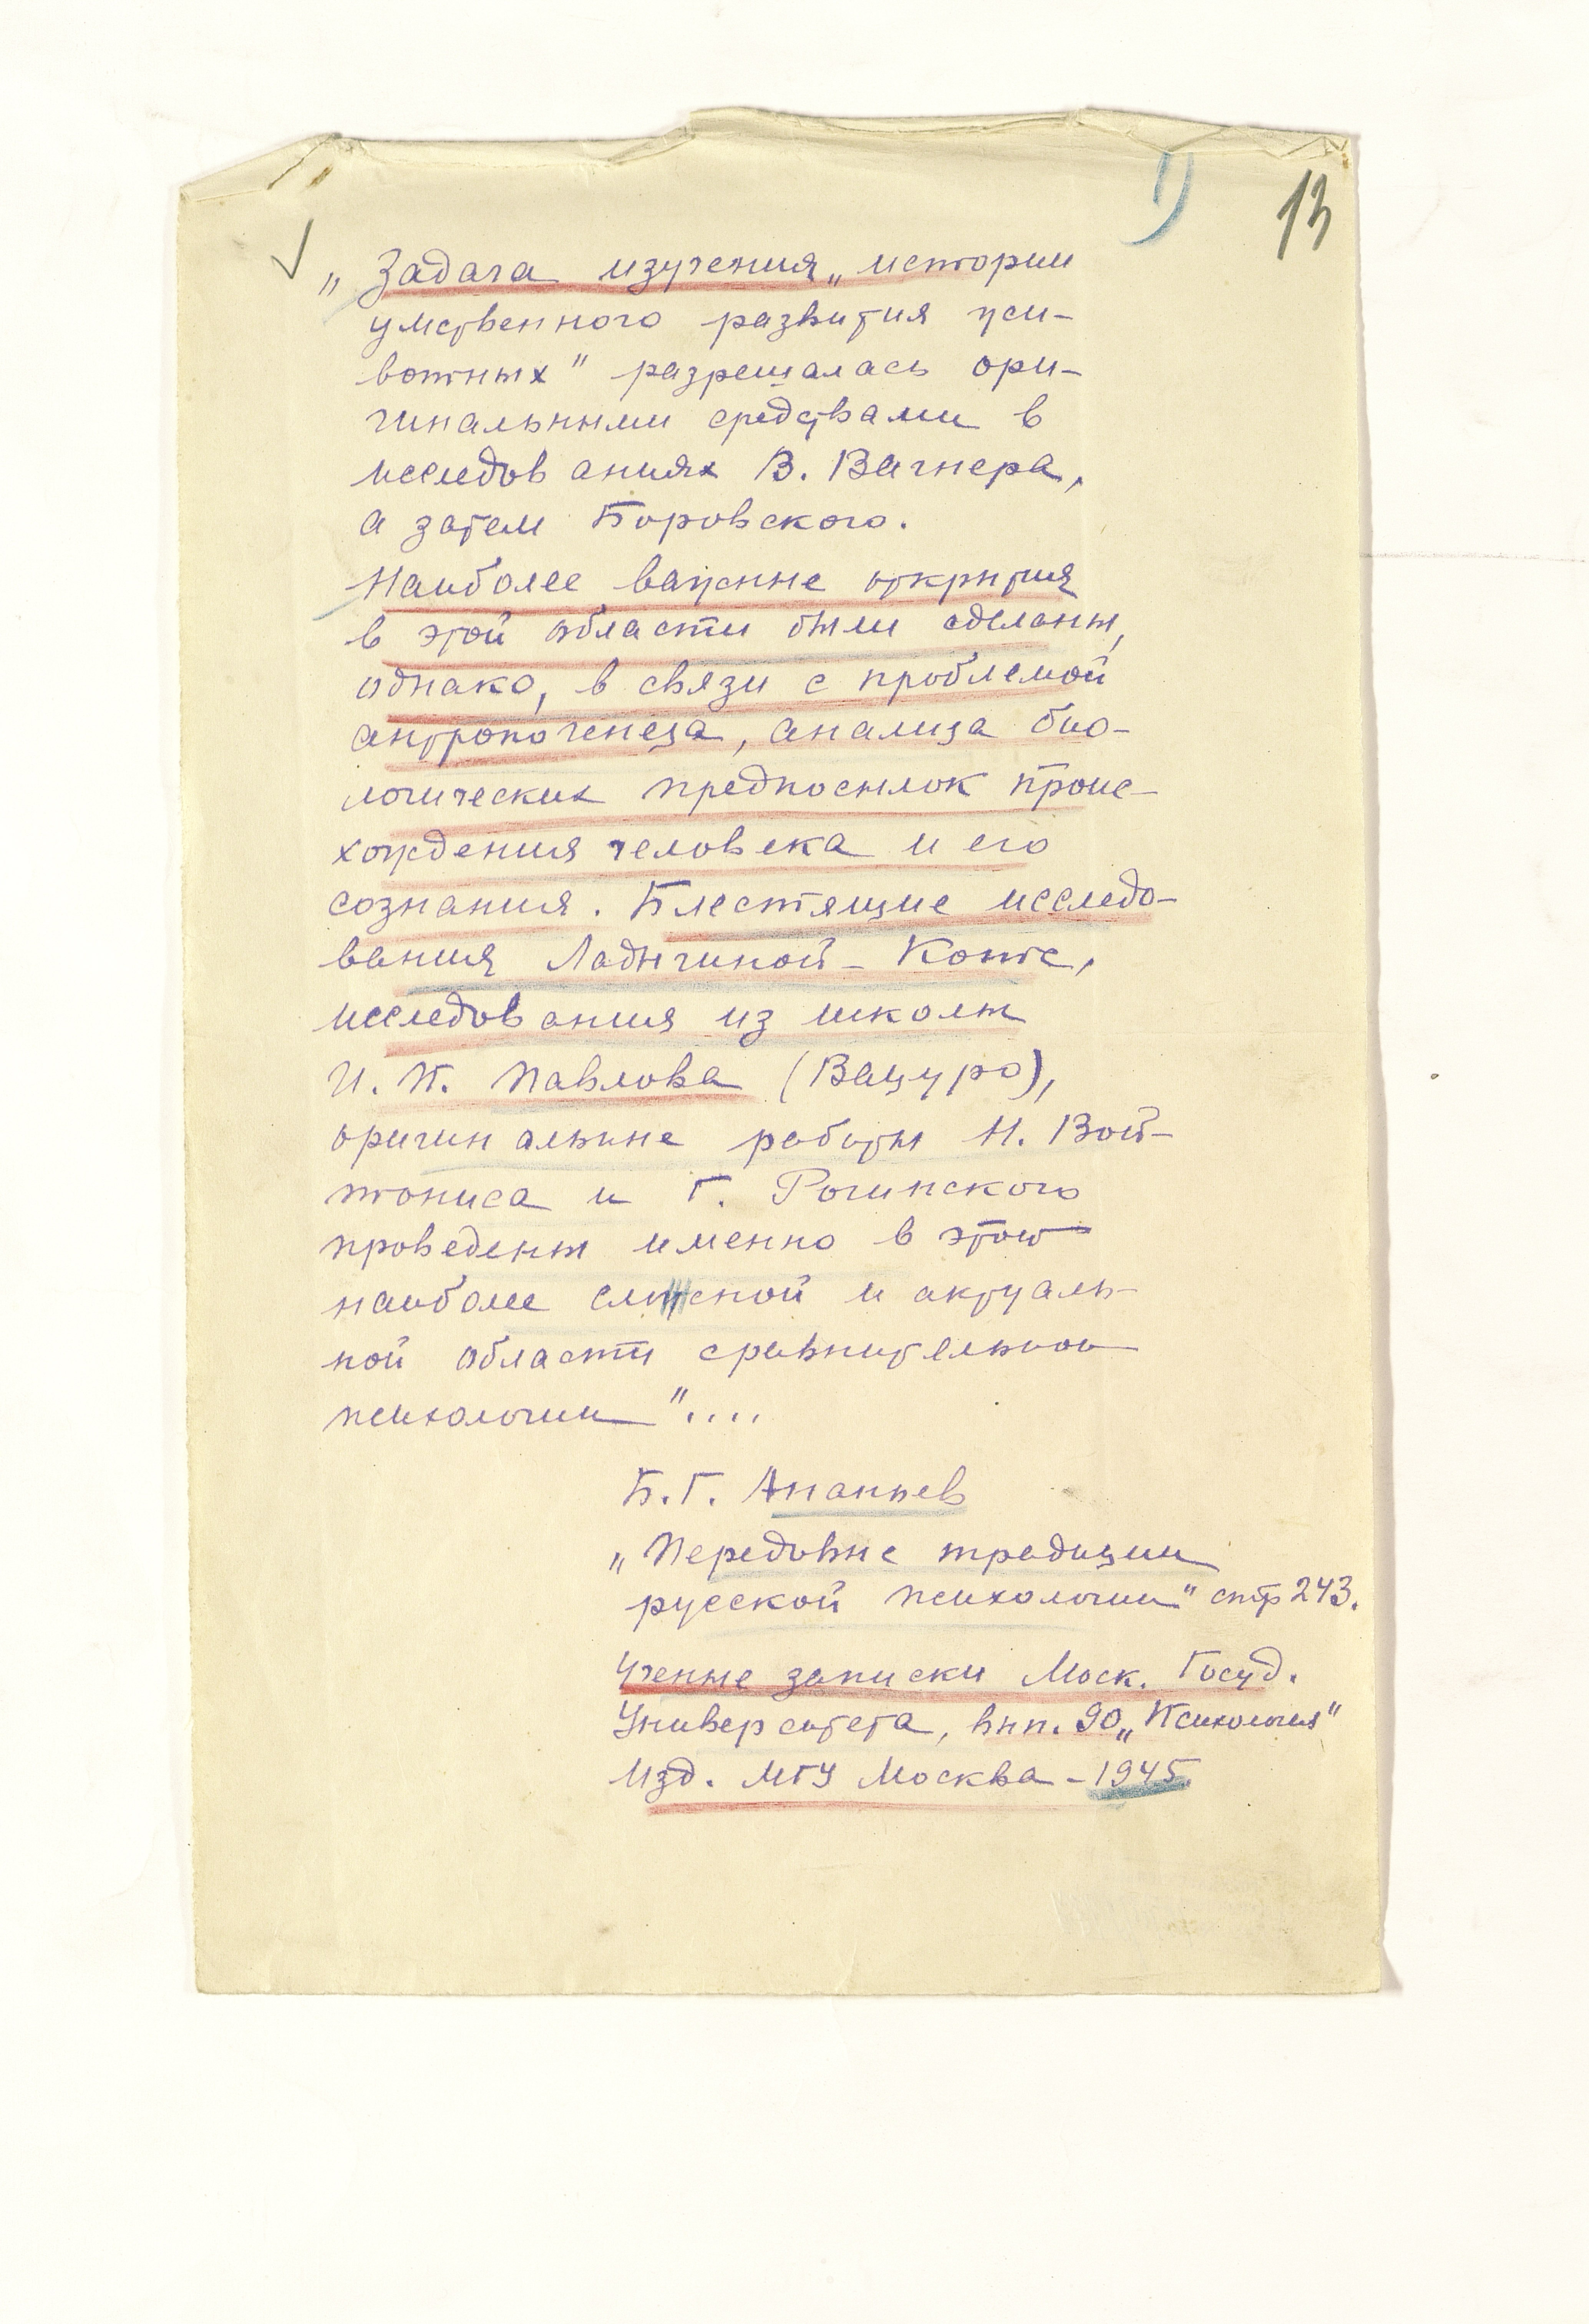 1) 13
„Задача изучения „истории
умственного развития жи-
вотных" разрешалась ори-
гинальными средствами в
исследованиях В. Вагнера,
а затем Боровского.
Наиболее важные открытия
в этой области были сделаны,
однако, в связи с проблемой
антропогенеза, анализа био-
логических предпосылок проис-
хождения человека и его
сознания. Блестящие исследо-
вания Ладыгиной-Котс,
исследования из школы
И. П. Павлова (Вацуро),
оригинальные работы Н. Вой-
тониса и Г. Рогинского
проведены именно в этой
наиболее сложной и актуаль-
ной области сравнительной
психологии"....
Б.Г. Ананьев
„Передовые традиции
русской психологии" стр 243.
Ученые записки Моск. Госуд.
Университета, вып. 90 „Психология"
Изд. МГУ Москва - 1945.